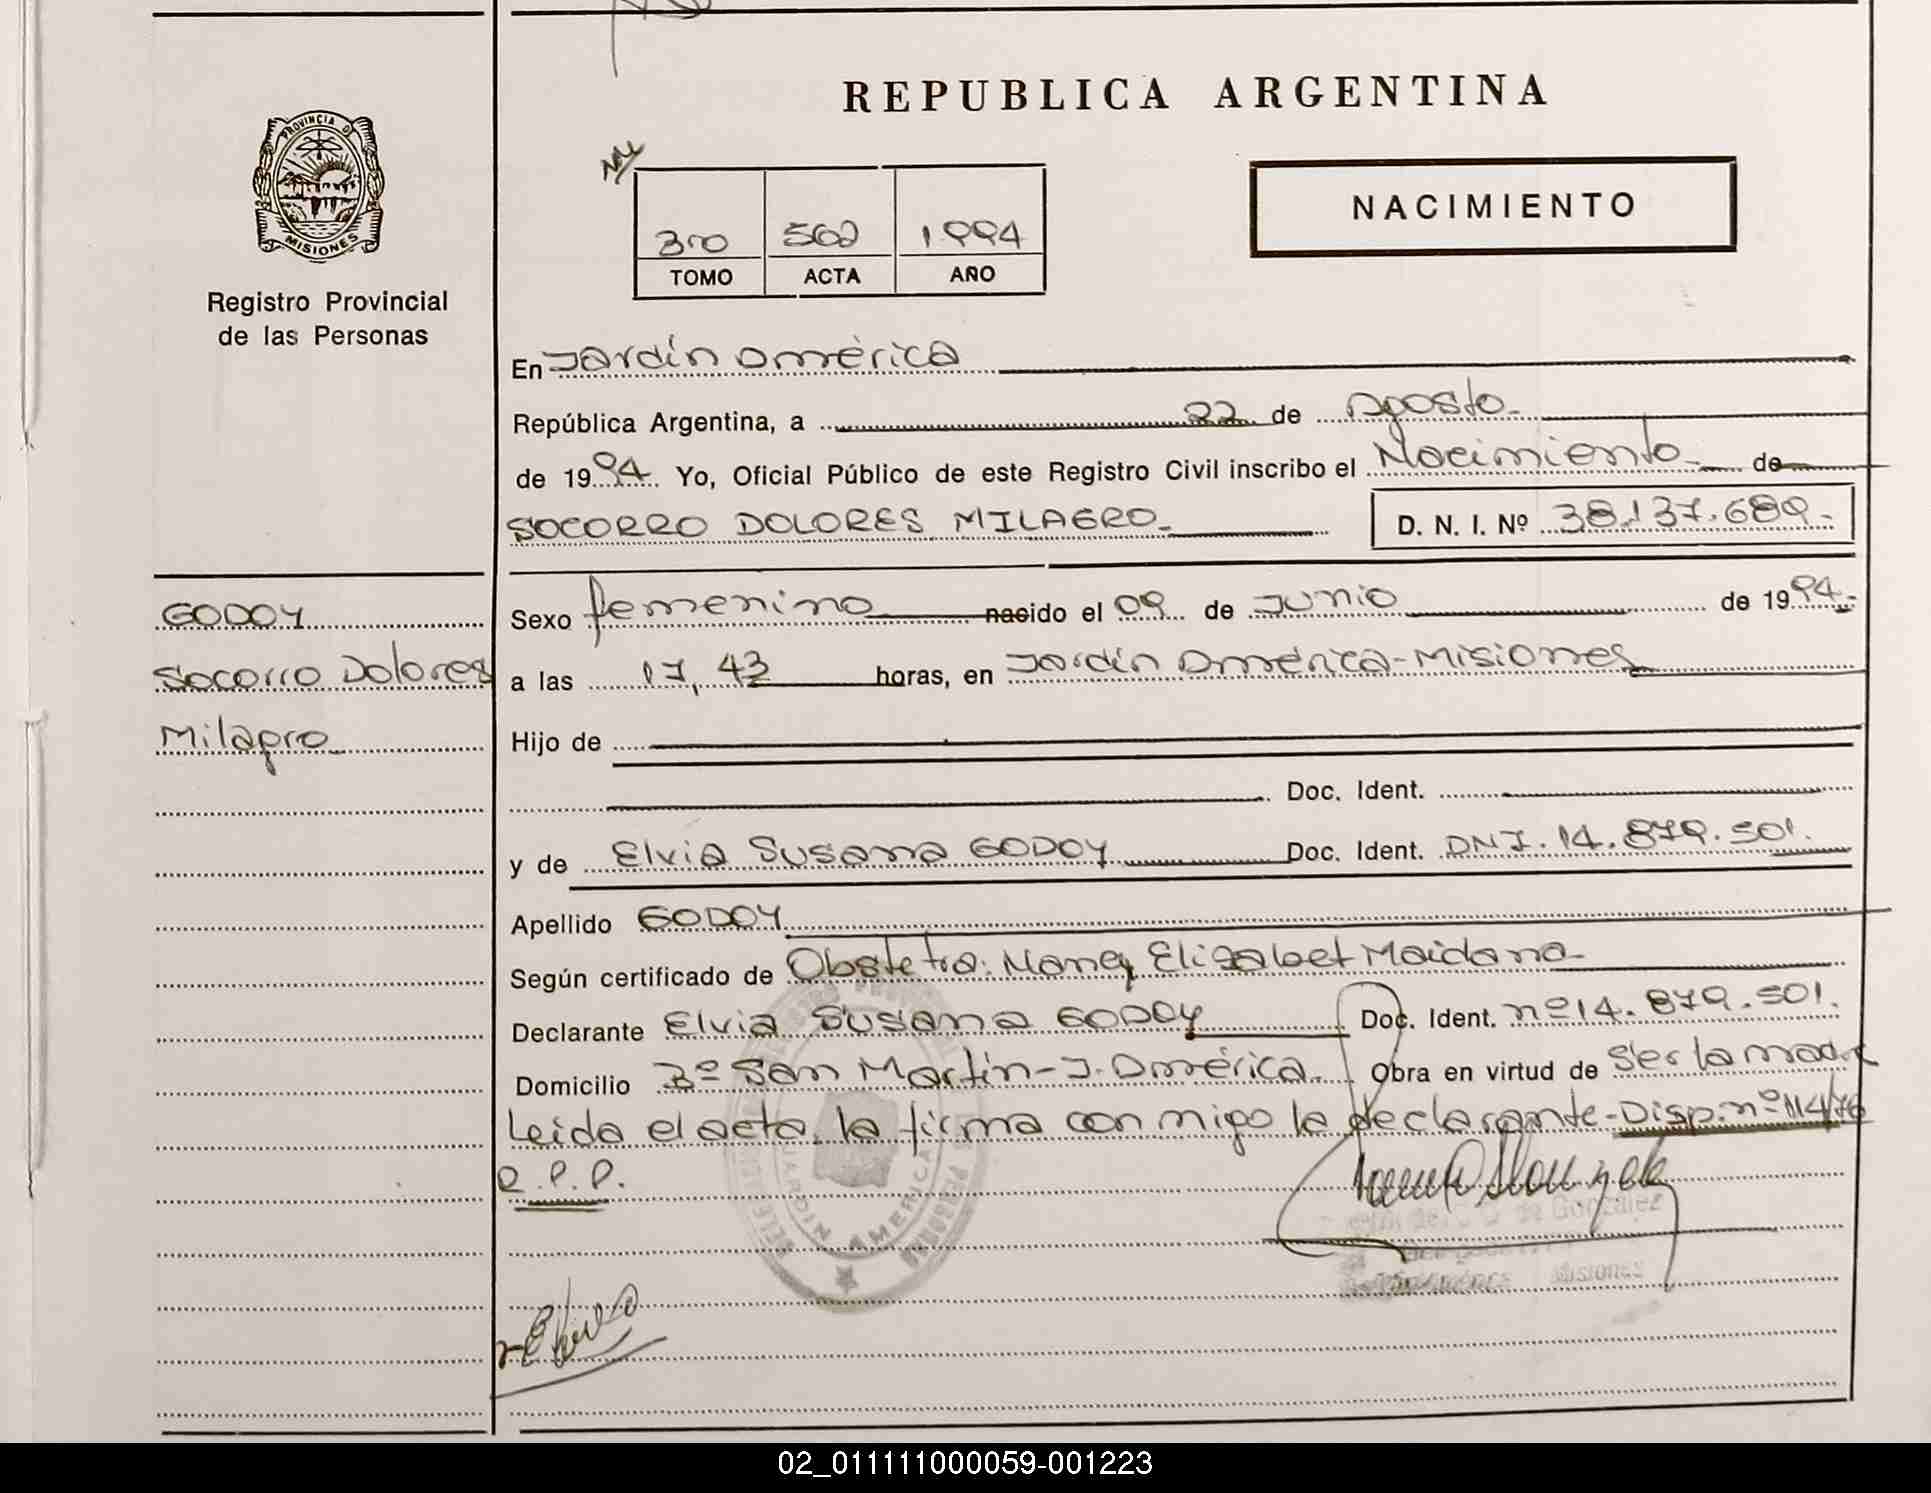 REPUBLICA ARGENTINA
PROVINCIA DE
MISIONES
Registro Provincial
de las Personas
NACIMIENTO
3ro 562 1994
TOMO ACTA AÑO
En Jardín América
República Argentina, a 22 de Agosto
de 1994 Yo, Oficial Público de este Registro Civil inscribo el Nacimiento de
SOCORRO DOLORES MILAGRO D. N. I. Nº 38.137.689.
GODOY
Socorro Dolores
Milagro
Sexo femenino nacido el 09 de Junio de 1994.
a las 17,43 horas, en Jardín América-Misiones
Hijo de
Doc. Ident.
y de Elvia Susana GODOY Doc. Ident. DNI. 14.879.501.
Apellido GODOY
Según certificado de Obstetra: Nancy Elizabet Maidana
Declarante Elvia Susana GODOY Doc. Ident. nº14.879.501.
Domicilio Bº San Martín-J. América. Obra en virtud de ser la madre
Leída el acta, la firma con migo la declarante-Disp.nº114/76
R.P.P.
JARDIN AMERICA
de González
Misiones
02_011111000059-001223